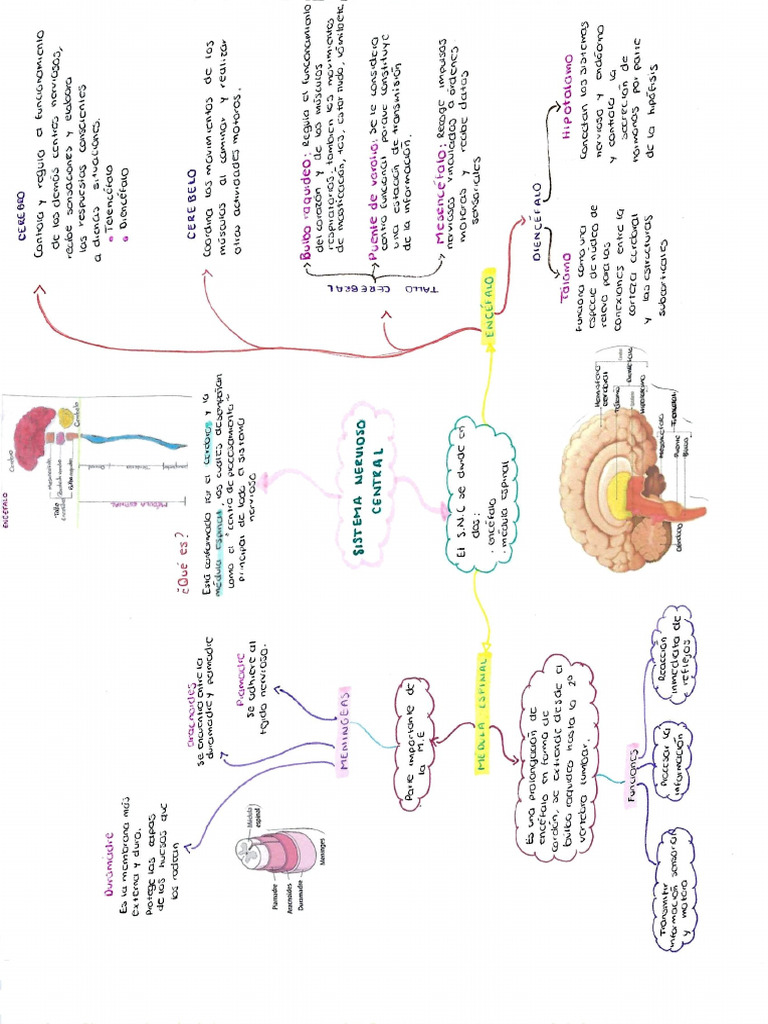 SISTEMA NERVIOSO
CENTRAL
¿Qué es?
Está conformado por el cerebro y la
médula espinal, los cuales desempeñan
como el "centro de procesamiento"
principal de todo el sistema
nervioso
ENCÉFALO
Cerebro
Cerebelo
Mesencéfalo
Tallo
Cerebral
MÉDULA ESPINAL
El S.N.C se divide en
dos:
. encéfalo
. médula espinal
MÉDULA ESPINAL
Parte importante de
la M.E
MENINGEAS
Duramadre
Es la membrana más
externa y dura.
Protege las capas
de los huesos que
los rodean
Aracnoides
Se encuentra entre la
duramadre y piamadre
Piamadre
Se adhiere al
tejido nervioso.
Médula
espinal
Piamadre
Aracnoides
Duramadre
Meninges
Es una prolongación de
encéfalo en forma de
cordón, se extiende desde el
bulbo raquídeo hasta la 2º
vertebra lumbar.
Funciones
Transmitir
información sensorial
y motora
Procesar la
información
Reacción
inmediata de
reflejos
ENCÉFALO
CEREBRO
Controla y regula el funcionamiento
de los demás centros nerviosos,
recibe sensaciones y elabora
las respuestas conscientes
a dichas situaciones.
Telencéfalo
Diencéfalo
CEREBELO
Coordina los movimientos de los
músculos al caminar y realizar
otras actividades motoras.
TALLO CEREBRAL
Bulbo raquídeo: Regula el funcionamiento
del corazón y de los músculos
respiratorios, también los movimientos
de masticación, tos, estornudo, vómito etc
Puente de varolio: Se le considera
centro funcional porque constituye
una estación de transmisión
de la información.
Mesencéfalo: Recoge impulsos
nerviosos vinculados a órdenes
motoras y recibe datos
sensoriales
DIENCÉFALO
Tálamo
Funciona como una
especie de núcleo de
relevo para las
conexiones entre la
corteza cerebral
y las estructuras
subcorticales
Hipotálamo
Conectan los sistemas
nervioso y endócrino
y controla la
secreción de
hormonas por parte
de la hipófisis
Hemisferio
cerebral
Tálamo
Hipotálamo
Diencéfalo
Mesencéfalo
Puente
Bulbo
Cerebelo